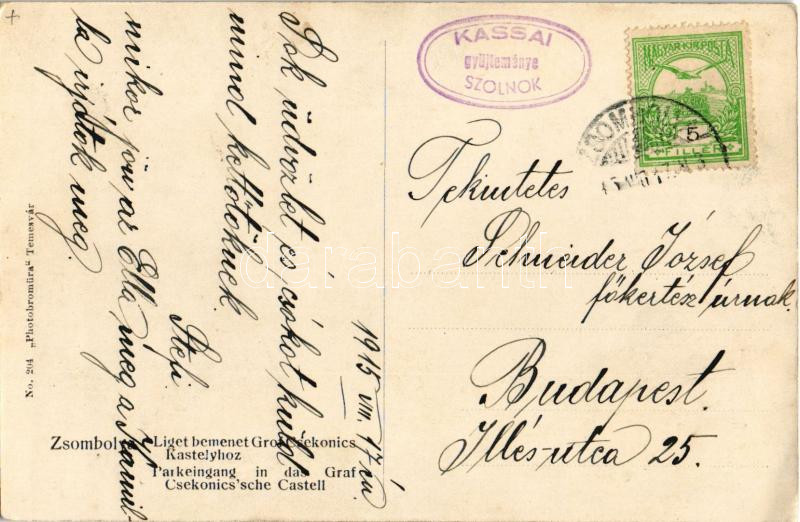 KASSAI
gyüjteménye
SZOLNOK
MAGYAR KIR. POSTA
5
FILLÉR
Tekintetes
Schneider József
főkertész úrnak.
Budapest.
Illés-utca 25.
1915 VIII. 17 én
Sok üdvözlet és csókot küld
mind kettőtöknek
Stefi
mikor jön az Ella meg a Kamil-
la irjátok meg.
No. 204 „Photobromüra" Temesvár
Zsombolya Liget bemenet Grof Csekonics
Kastelyhoz
Parkeingang in das Graf
Csekonics'sche Castell
darabanth